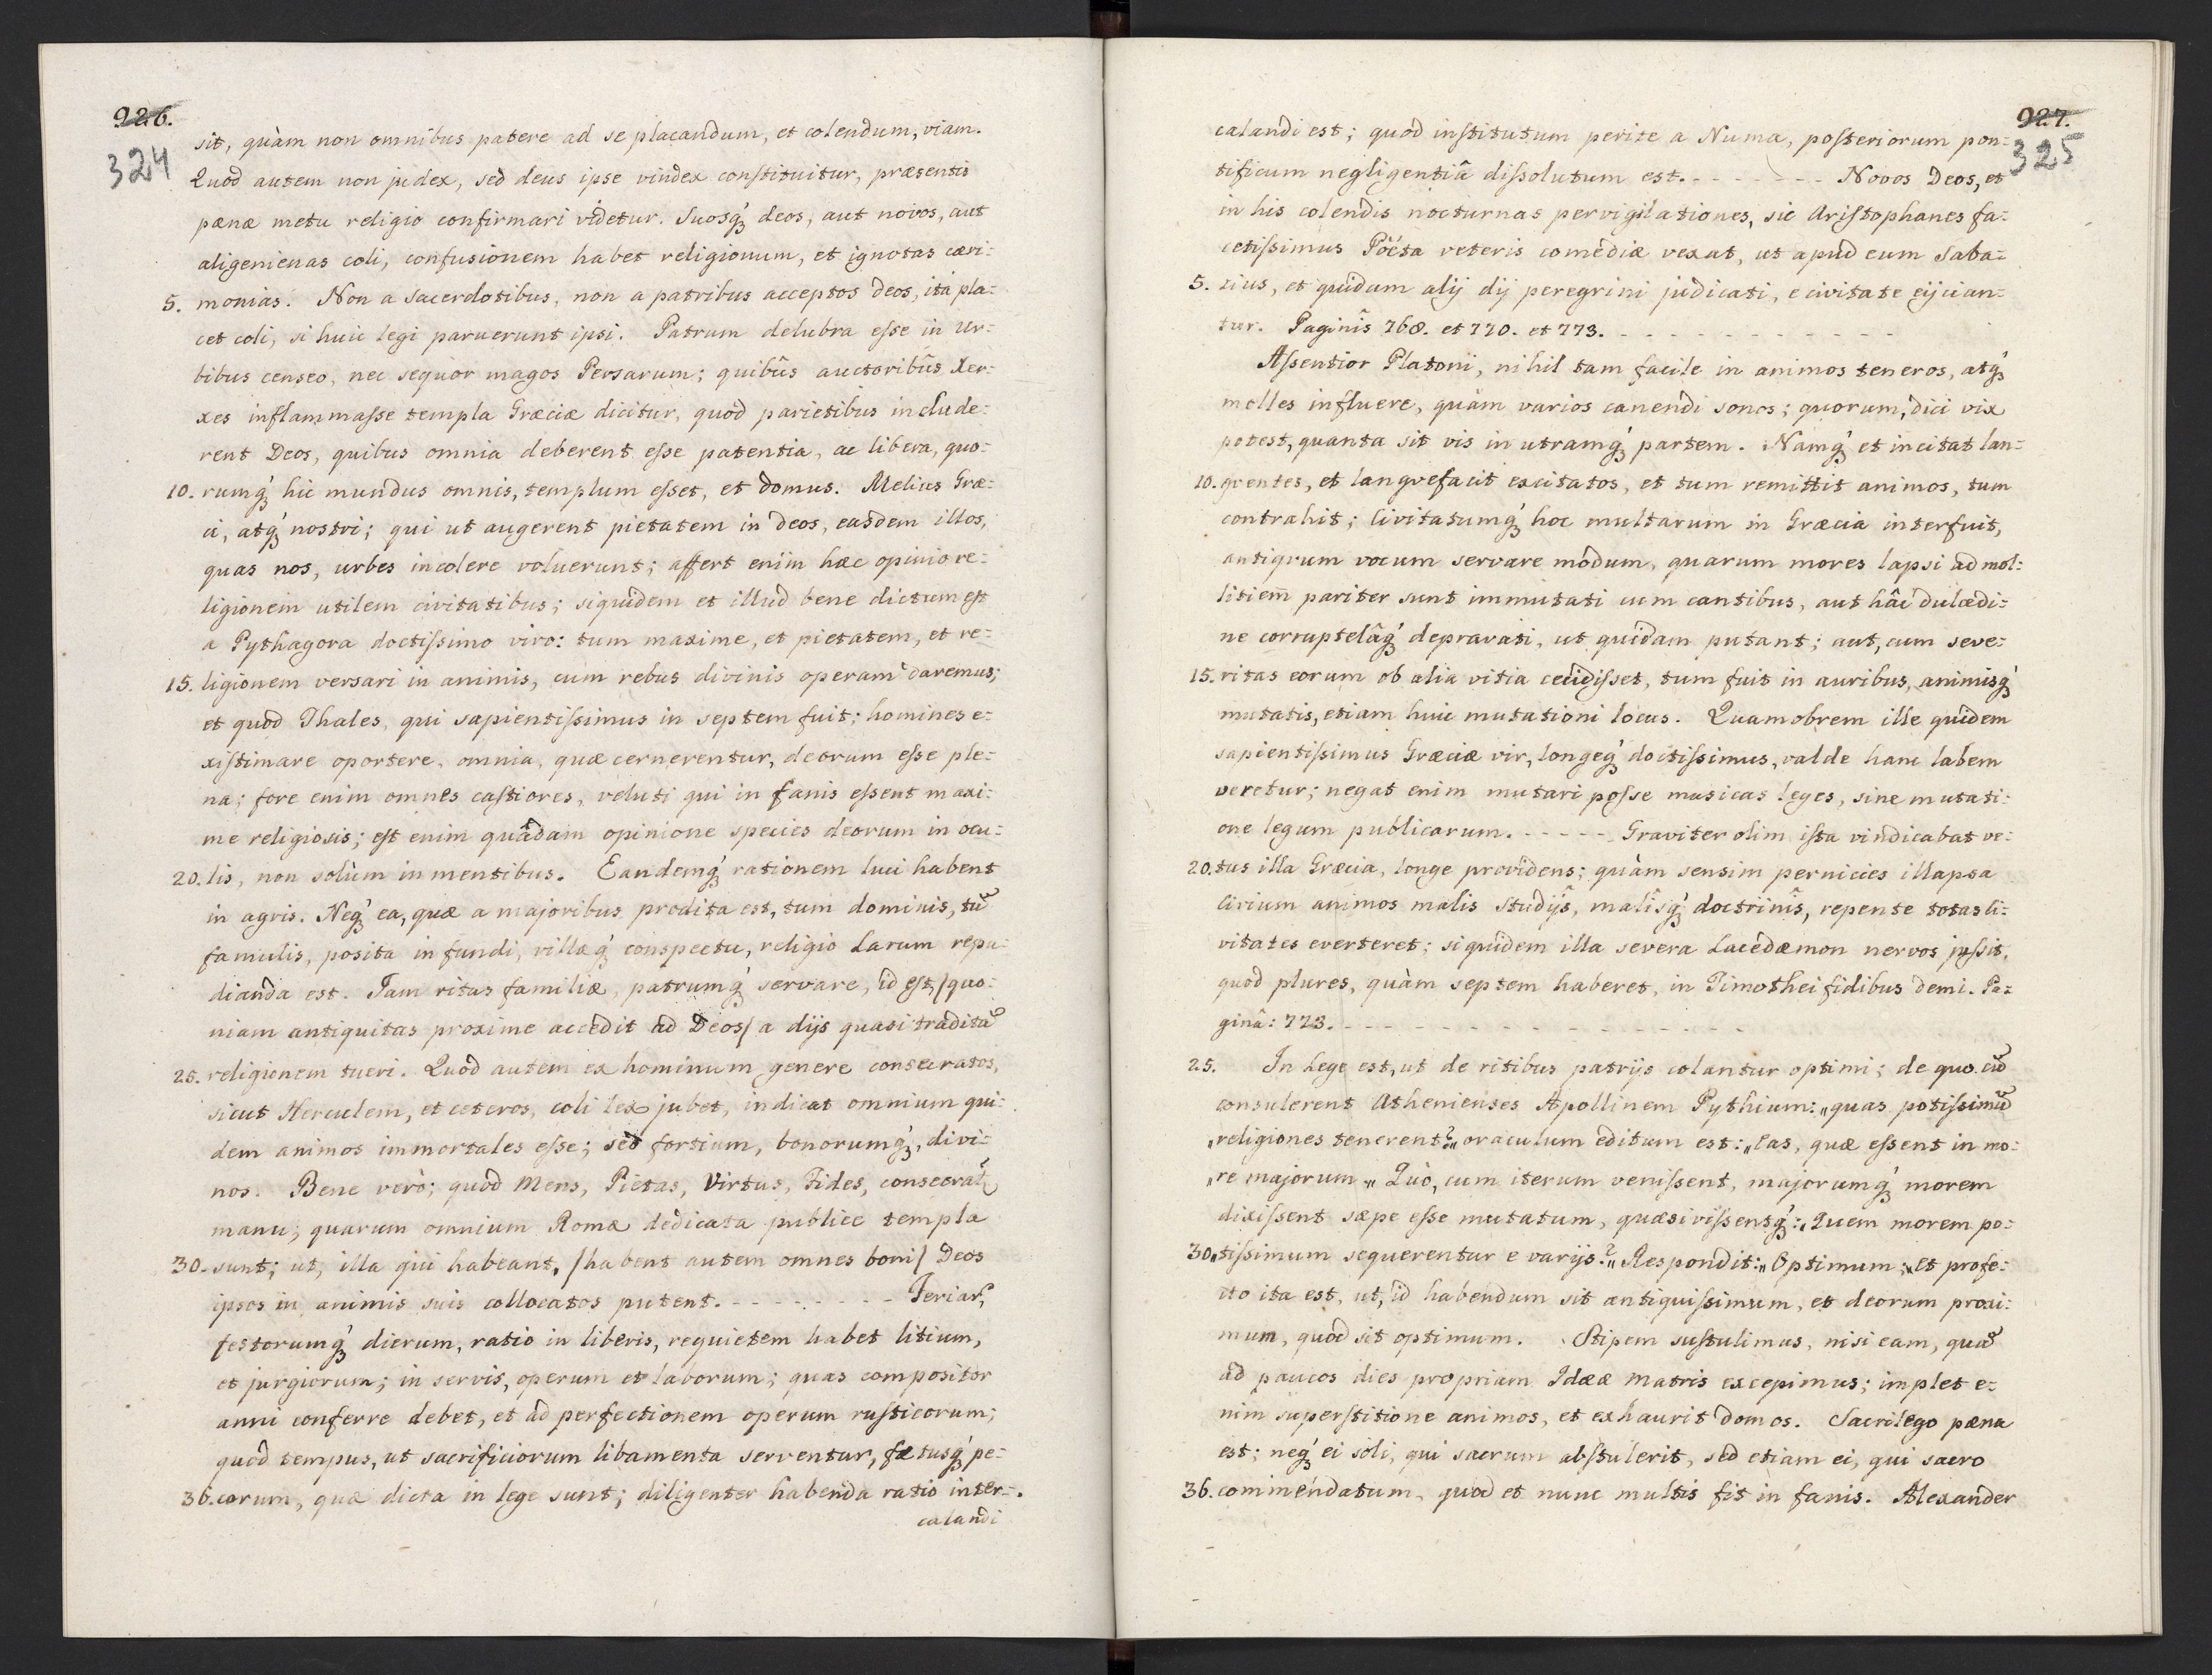 926.
324
sit, quàm non omnibus patere ad se placandum, et colendum, viam.
Quod autem non judex, sed deus ipse vindex constituitur, præsentis
pænæ metu religio confirmari videtur. Suosq́ꝫ deos, aut novos, aut
aligenienas coli, confusionem habet religionum, et ignotas cæri=
5. monias. Non a sacerdotibus, non a patribus acceptos deos, ita pla=
cet coli, si huic legi paruerunt ipsi. Patrum delubra esse in Ur=
bibus censeo, nec sequor magos Persarum; quibûs auctoribûs Xer=
xes inflammasse templa Græciæ dicitur, quod parietibus include=
rent Deos, quibus omnia deberent esse patentia, ac libera, quo=
10. rumq́ꝫ hic mundus omnis, templum esset, et domus. Melius Græ=
ci, atq́ꝫ nostri; qui ut augerent pietatem in deos, easdem illos,
quas nos, urbes incolere voluerunt; affert enim hæc opinio re=
ligionem utilem civitatibus; siquidem et illud bene dictum est
a Pythagora doctissimo viro: tum maxime, et pietatem, et re=
15. ligionem versari in animis, cum rebus divinis operam daremus;
et quod Thales, qui sapientissimus in septem fuit; homines e=
xistimare oportere, omnia, quæ cernerentur, deorum esse ple=
na; fore enim omnes castiores, veluti qui in fanis essent maxi=
me religiosis; est enim quâdam opinione species deorum in ocu=
20. lis, non solùm in mentibus. Eandemq́ꝫ rationem luci habent
in agris. Neq́ꝫ ea, quæ a majoribus prodita est, tum dominis, tū
famulis, posita in fundi, villæq́ꝫ conspectu, religio Larum repu=
dianda est. Jam ritus familiæ, patrumq́ꝫ servare, id est, /quo=
niam antiquitas proxime accedit ad Deos/ a dijs quasi traditā
25. religionem tueri. Quod autem ex hominum genere consecratos,
sicut Herculem, et ceteros, coli lex jubet, indicat omnium qui=
dem animos immortales esse; sed fortium, bonorumq́ꝫ, divi=
nos. Bene verò; quod Mens, Pietas, Virtus, Fides, consecrat̃
manu; quarum omnium Romæ dedicata publice templa
30. sunt; ut, illa qui habeant, /habent autem omnes boni/ Deos
ipsos in animis suis collocatos putent. - - - - - - - - Feriar̃,
festorumq́ꝫ dierum, ratio in liberis, requietem habet litium,
et jurgiorum; in servis, operum et laborum; quas compositor
anni conferre debet, et ad perfectionem operum rusticorum;
quod tempus, ut sacrificiorum libamenta serventur, fætusq́ꝫ pe=
36. corum, quæ dicta in lege sunt; diligenter habenda ratio inter=
calandi
927.
325
calandi est; quod institutum perite a Numa, posteriorum pon=
tificum negligentiâ dissolutum est. - - - - - - - Novos Deos, et
in his colendis nocturnas pervigilationes, sic Aristophanes fa=
cetissimus Pöéta veteris comediæ vexat, ut apud eum Saba=
5. zius, et quidam alij dij peregrini judicati, e civitate eijcian=
tur. Paginîs 768. et 770. et 773. - - - - - - - - - - -
Assentior Platoni, nihil tam facile in animos teneros, atq́ꝫ
molles influere, quàm varios canendi sonos; quorum, dici vix
potest, quanta sit vis in utramq́ꝫ partem. Namq́ꝫ et incitat lan=
10. gventes, et langvefacit excitatos, et tum remittit animos, tum
contrahit; Civitatumq́ꝫ hoc multarum in Græcia interfuit,
antiqrum vocum servare módum, quarum mores lapsi ad mol=
litiem̄ pariter sunt immutati cum cantibus, aut hâc dulcedi=
ne corruptelâq́ꝫ depravati, ut quidam putant; aut, cum seve=
15. ritas eorum ob alia vitia cecidisset, tum fuit in auribus, animisq́ꝫ
mutatis, etiam huic mutationi locus. Quamobrem ille quidem
sapientissimus Græciæ vir, longeq́ꝫ doctissimus, valde hanc labem
veretur; negat enim mutari posse musicas leges, sine mutati=
one legum publicarum. - - - - - Graviter olim ista vindicabat ve=
20. tus illa Græcia, longe providens; quàm sensim pernicies illapsa
civium animos malis studijs, malîsq́ꝫ doctrinîs, repente totas ci=
vitates everteret; siquidem illa severa Lacedæmon nervos jussit,
quod plures, quàm septem haberet, in Timothei fidibus demi. Pa=
ginâ: 773. - - - - - - - - - - - - - - - -
25. In Lege est, ut de ritibus patrijs colantur optimi; de quo cū
consulerent Athenienses Apollinem Pythium: „quas potissimū
„religiones tenerent?„ oraculum editum est: „eas, quæ essent in mo=
„re majorum„ Quò, cum iterum venissent, majorumq́ꝫ morem
dixissent sæpe esse mutatum, quæsivissentq́ꝫ: „Quem morem po=
30. „tissimum sequerentur e varijs?„ Respondit: „Optimum;„ et profe=
cto ita est, ut, id habendum sit antiquissimum, et deorum proxi=
mum, quod sit optimum. Stipem sustulimus, nisi eam, quā
ad paucos dies propriam Idææ Matris excepimus; implet e=
nim superstitione animos, et exhaurit domos. Sacrilego pæna
est; neq́ꝫ ei soli, qui sacrum abstulerit, sed etiam ei, qui sacro
36. commendatum, quod et nunc multis fit in fanis. Alexander